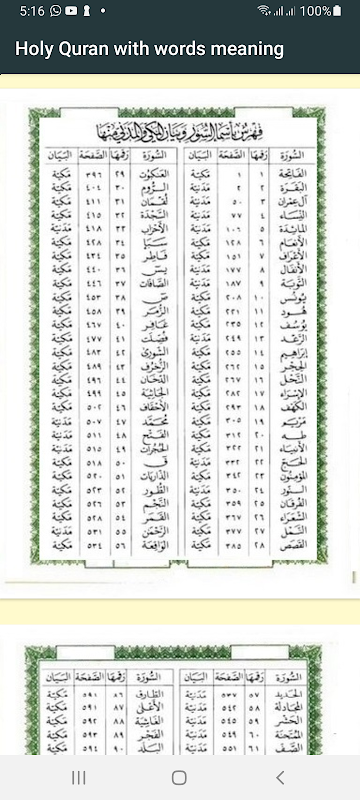 5:16 100%
Holy Quran with words meaning
فهرس بأسماء السور وبيان المكي والمدني منها
السورة رقمها الصفحة البيان السورة رقمها الصفحة البيان
الفاتحة ١ ١ مكية العنكبوت ٢٩ ٣٩٦ مكية
البقرة ٢ ٢ مدنية الروم ٣٠ ٤٠٤ مكية
آل عمران ٣ ٥٠ مدنية لقمان ٣١ ٤١١ مكية
النساء ٤ ٧٧ مدنية السجدة ٣٢ ٤١٥ مكية
المائدة ٥ ١٠٦ مدنية الأحزاب ٣٣ ٤١٨ مدنية
الأنعام ٦ ١٢٨ مكية سبإ ٣٤ ٤٢٨ مكية
الأعراف ٧ ١٥١ مكية فاطر ٣٥ ٤٣٤ مكية
الأنفال ٨ ١٧٧ مدنية يس ٣٦ ٤٤٠ مكية
التوبة ٩ ١٨٧ مدنية الصافات ٣٧ ٤٤٦ مكية
يونس ١٠ ٢٠٨ مكية ص ٣٨ ٤٥٣ مكية
هود ١١ ٢٢١ مكية الزمر ٣٩ ٤٥٨ مكية
يوسف ١٢ ٢٣٥ مكية غافر ٤٠ ٤٦٧ مكية
الرعد ١٣ ٢٤٩ مدنية فصلت ٤١ ٤٧٧ مكية
إبراهيم ١٤ ٢٥٥ مكية الشورى ٤٢ ٤٨٣ مكية
الحجر ١٥ ٢٦٢ مكية الزخرف ٤٣ ٤٨٩ مكية
النحل ١٦ ٢٦٧ مكية الدخان ٤٤ ٤٩٦ مكية
الإسراء ١٧ ٢٨٢ مكية الجاثية ٤٥ ٤٩٩ مكية
الكهف ١٨ ٢٩٣ مكية الأحقاف ٤٦ ٥٠٢ مكية
مريم ١٩ ٣٠٥ مكية محمد ٤٧ ٥٠٧ مدنية
طه ٢٠ ٣١٢ مكية الفتح ٤٨ ٥١١ مدنية
الأنبياء ٢١ ٣٢٢ مكية الحجرات ٤٩ ٥١٥ مدنية
الحج ٢٢ ٣٣٢ مدنية ق ٥٠ ٥١٨ مكية
المؤمنون ٢٣ ٣٤٢ مكية الذاريات ٥١ ٥٢٠ مكية
النور ٢٤ ٣٥٠ مدنية الطور ٥٢ ٥٢٣ مكية
الفرقان ٢٥ ٣٥٩ مكية النجم ٥٣ ٥٢٦ مكية
الشعراء ٢٦ ٣٦٧ مكية القمر ٥٤ ٥٢٨ مكية
النمل ٢٧ ٣٧٧ مكية الرحمن ٥٥ ٥٣١ مدنية
القصص ٢٨ ٣٨٥ مكية الواقعة ٥٦ ٥٣٤ مكية
السورة رقمها الصفحة البيان السورة رقمها الصفحة البيان
الحديد ٥٧ ٥٣٧ مدنية الطارق ٨٦ ٥٩١ مكية
المجادلة ٥٨ ٥٤٢ مدنية الأعلى ٨٧ ٥٩١ مكية
الحشر ٥٩ ٥٤٥ مدنية الغاشية ٨٨ ٥٩٢ مكية
الممتحنة ٦٠ ٥٤٩ مدنية الفجر ٨٩ ٥٩٣ مكية
الصف ٦١ ٥٥١ مدنية البلد ٩٠ ٥٩٤ مكية